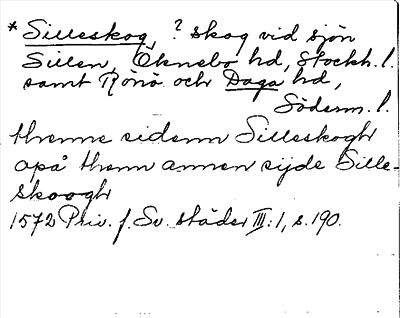 * Silleskog, ? skog vid sjön
Sillen, Öknebo hd, Stockh. l.
samt Rönö och Daga hd,
Söderm. l.
thenne sidenn Silleskogh
opå them annen sijde Sille-
skoogh
1572 Priv. f. Sv. städer III:1, s. 190.